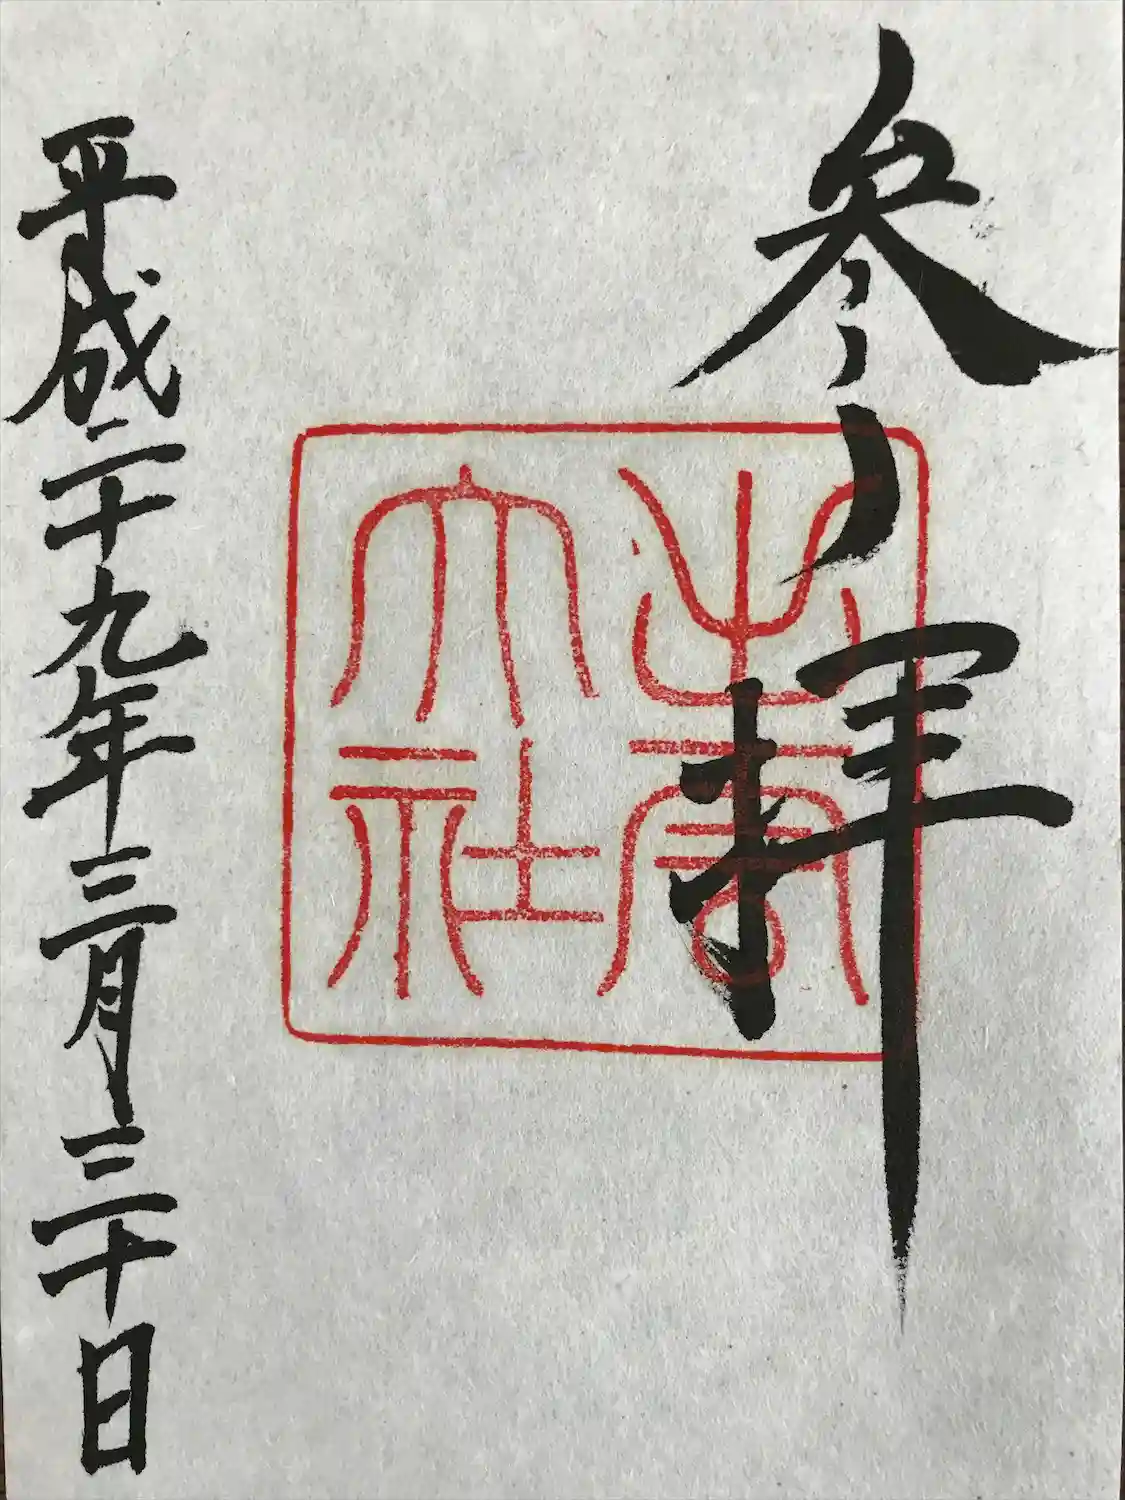 参拝
出雲大社
平成二十九年三月三十日